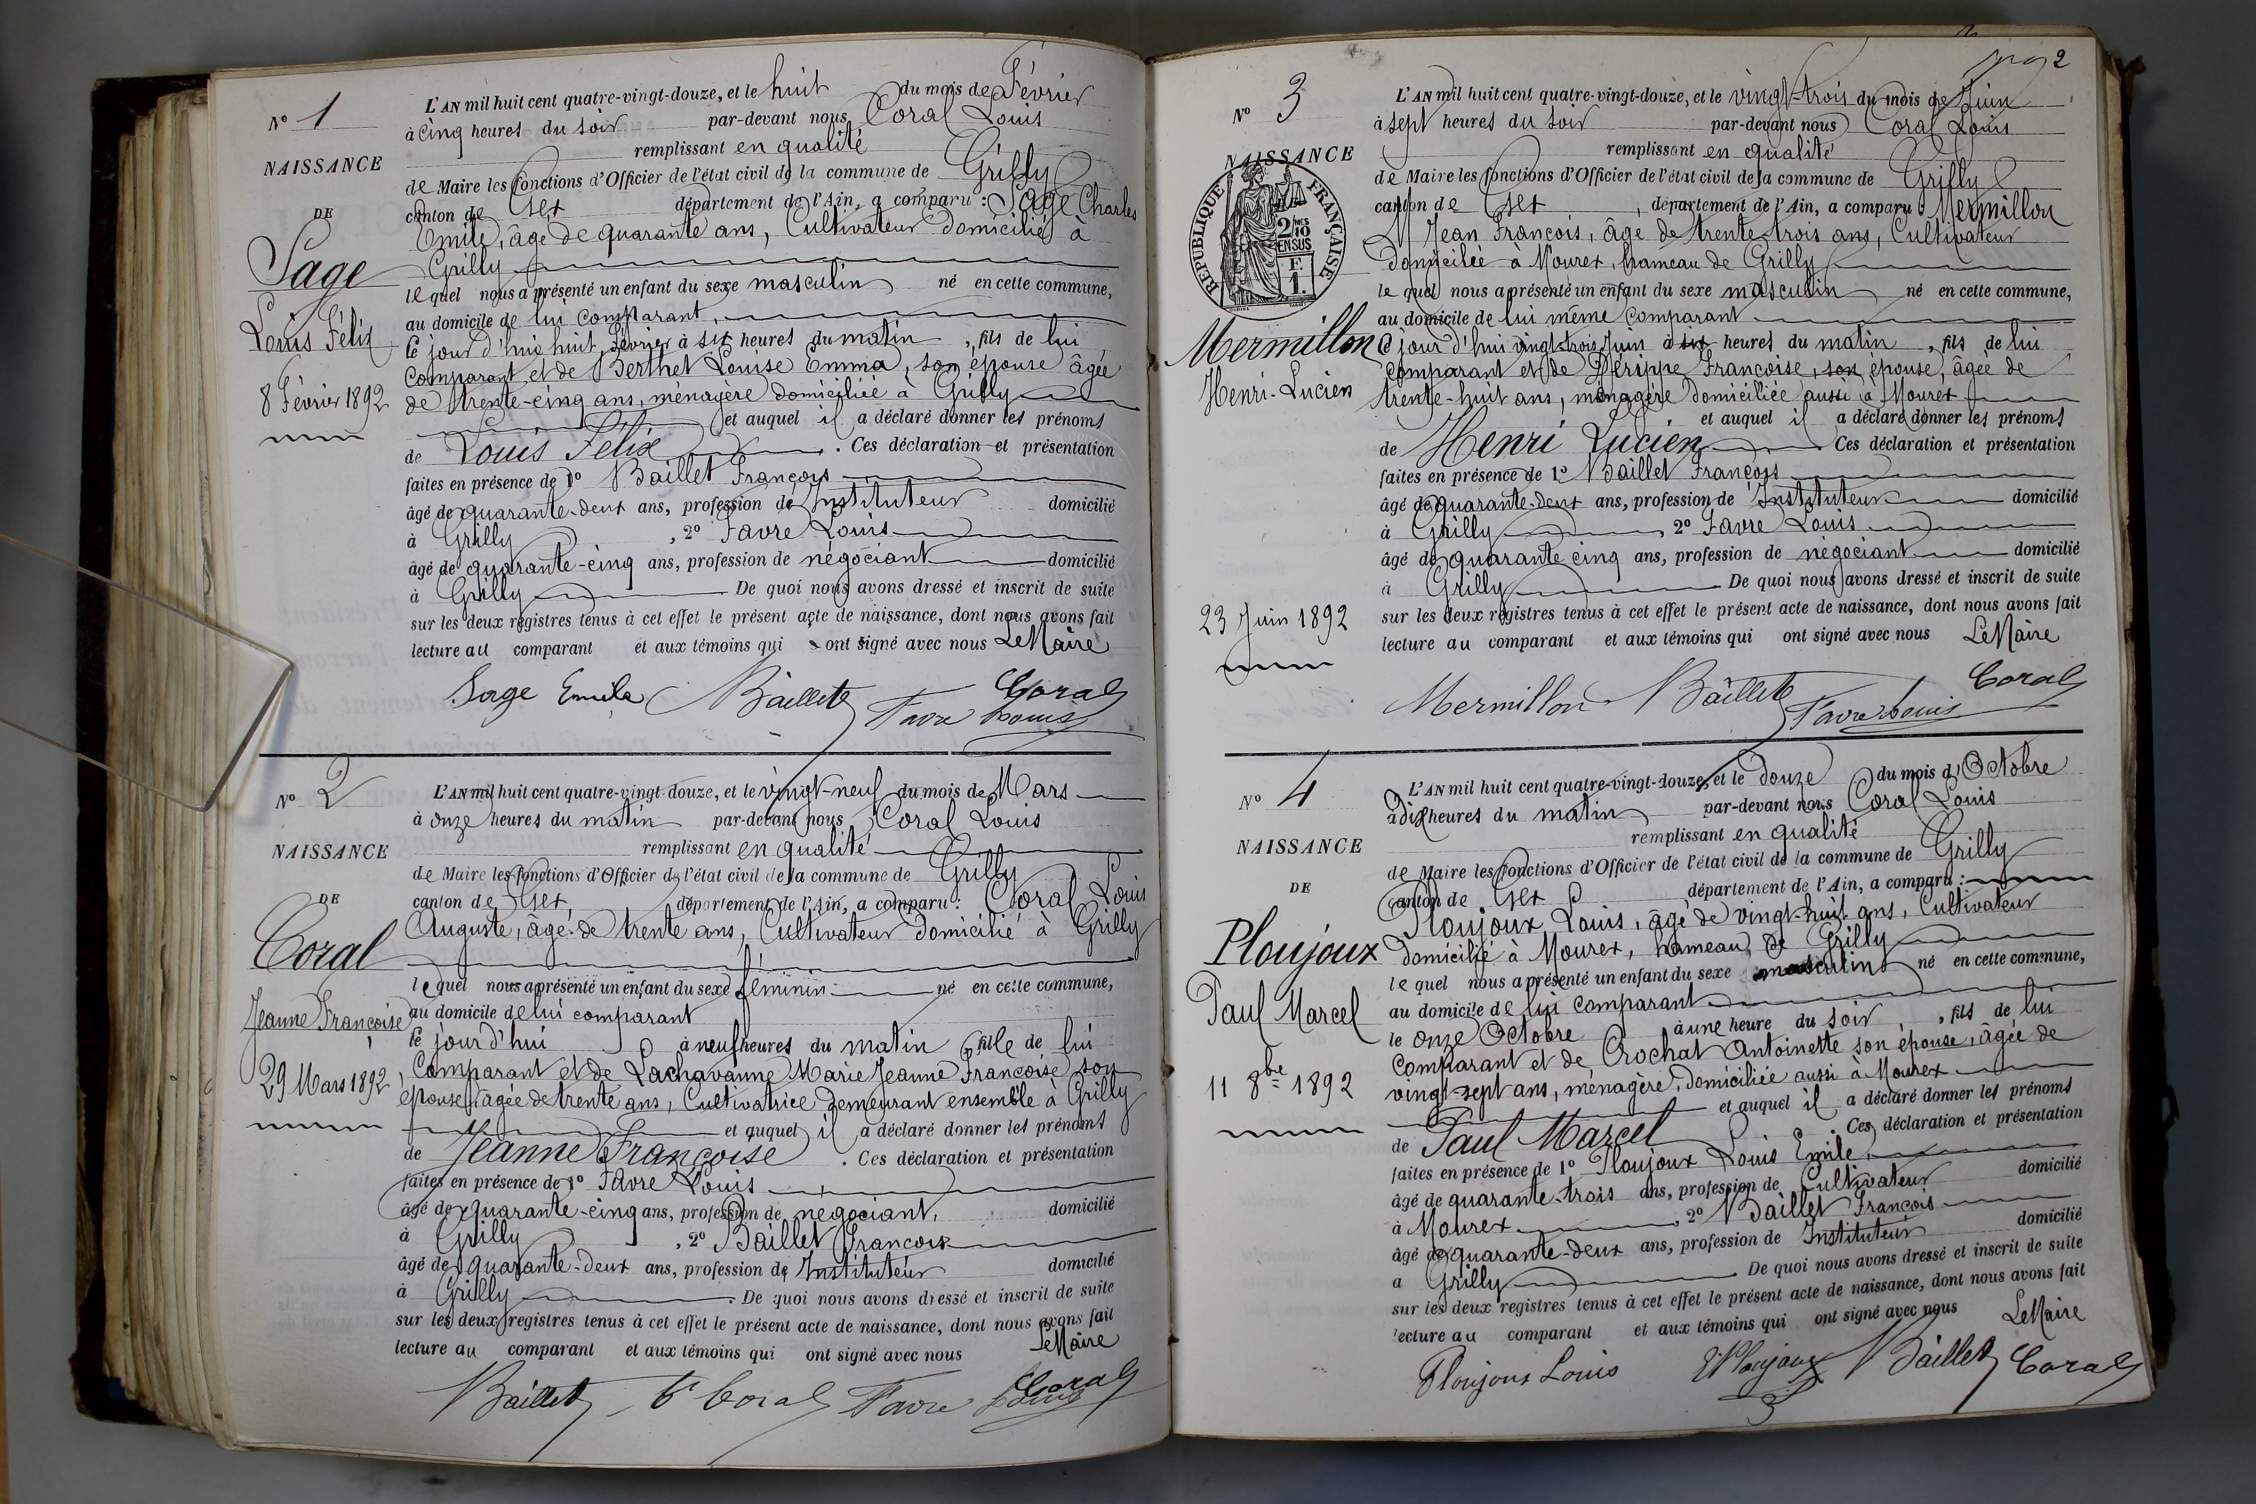 Nº 1
NAISSANCE
DE
Sage
Louis Félix
8 Février 1892
L'AN mil huit cent quatre-vingt-douze, et le huit du mois de Février
à cinq heures du soir par-devant nous Coral Louis
remplissant en qualité
de Maire les fonctions d'Officier de l'état civil de la commune de Grilly
canton de Gex département de l'Ain, a comparu : Sage Charles
Emile, âgé de quarante ans, Cultivateur domicilié à
Grilly
lequel nous a présenté un enfant du sexe masculin né en cette commune,
au domicile de lui comparant,
le jour d'hui huit Février à six heures du matin, fils de lui
comparant et de Berthet Louise Emma, son épouse âgée
de trente-cinq ans, ménagère domiciliée à Grilly
et auquel il a déclaré donner les prénoms
de Louis Félix. Ces déclaration et présentation
faites en présence de 1º Baillet François
âgé de quarante-deux ans, profession de Instituteur domicilié
à Grilly, 2º Favre Louis
âgé de quarante-cinq ans, profession de négociant domicilié
à Grilly De quoi nous avons dressé et inscrit de suite
sur les deux registres tenus à cet effet le présent acte de naissance, dont nous avons fait
lecture au comparant et aux témoins qui ont signé avec nous Le Maire
Sage Emile Baillet Favre Louis Coral
Nº 2
NAISSANCE
DE
Coral
Jeanne Françoise
29 Mars 1892
L'AN mil huit cent quatre-vingt-douze, et le vingt-neuf du mois de Mars
à onze heures du matin par-devant nous Coral Louis
remplissant en qualité
de Maire les fonctions d'Officier de l'état civil de la commune de Grilly
canton de Gex, département de l'Ain, a comparu : Coral Louis
Auguste, âgé de trente ans, Cultivateur domicilié à Grilly
lequel nous a présenté un enfant du sexe féminin né en cette commune,
au domicile de lui comparant
le jour d'hui à neuf heures du matin fille de lui
comparant et de Lachavanne Marie Jeanne Françoise son
épouse, âgée de trente ans, Cultivatrice demeurant ensemble à Grilly
et auquel il a déclaré donner les prénoms
de Jeanne Françoise. Ces déclaration et présentation
faites en présence de 1º Favre Louis
âgé de quarante-cinq ans, profession de négociant, domicilié
à Grilly, 2º Baillet François
âgé de quarante-deux ans, profession de Instituteur domicilié
à Grilly. De quoi nous avons dressé et inscrit de suite
sur les deux registres tenus à cet effet le présent acte de naissance, dont nous avons fait
lecture au comparant et aux témoins qui ont signé avec nous Le Maire
Baillet Coral Favre Louis Coral
2
Nº 3
NAISSANCE
RÉPUBLIQUE FRANÇAISE
2/10
EN SUS
F.
1.
Mermillon
Henri-Lucien
23 Juin 1892
L'AN mil huit cent quatre-vingt-douze, et le vingt-trois du mois de Juin
à sept heures du soir par-devant nous Coral Louis
remplissant en qualité
de Maire les fonctions d'Officier de l'état civil de la commune de Grilly
canton de Gex, département de l'Ain, a comparu : Mermillon
Jean François, âgé de trente-trois ans, Cultivateur
domicilié à Mourex, hameau de Grilly
lequel nous a présenté un enfant du sexe masculin né en cette commune,
au domicile de lui même comparant
le jour d'hui vingt-trois Juin à six heures du matin, fils de lui
comparant et de Dérippe Françoise, son épouse, âgée de
trente-huit ans, ménagère domiciliée aussi à Mourex
et auquel il a déclaré donner les prénoms
de Henri Lucien Ces déclaration et présentation
faites en présence de 1º Baillet François
âgé de quarante-deux ans, profession de Instituteur domicilié
à Grilly 2º Favre Louis
âgé de quarante cinq ans, profession de négociant domicilié
à Grilly De quoi nous avons dressé et inscrit de suite
sur les deux registres tenus à cet effet le présent acte de naissance, dont nous avons fait
lecture au comparant et aux témoins qui ont signé avec nous Le Maire
Mermillon Baillet Favre Louis Coral
Nº 4
NAISSANCE
DE
Ploujoux
Paul Marcel
11 8bre 1892
L'AN mil huit cent quatre-vingt-douze, et le douze du mois d'Octobre
à dix heures du matin par-devant nous Coral Louis
remplissant en qualité
de Maire les fonctions d'Officier de l'état civil de la commune de Grilly
canton de Gex département de l'Ain, a comparu :
Ploujoux Louis, âgé de vingt-huit ans, Cultivateur
domicilié à Mourex, hameau de Grilly
lequel nous a présenté un enfant du sexe masculin né en cette commune,
au domicile de lui comparant
le onze Octobre à une heure du soir, fils de lui
comparant et de Crochat Antoinette son épouse, âgée de
vingt-sept ans, ménagère, domiciliée aussi à Mourex
et auquel il a déclaré donner les prénoms
de Paul Marcel. Ces déclaration et présentation
faites en présence de 1º Ploujoux Louis Emile,
âgé de quarante-trois ans, profession de Cultivateur domicilié
à Mourex, 2º Baillet François
âgé de quarante-deux ans, profession de Instituteur domicilié
à Grilly De quoi nous avons dressé et inscrit de suite
sur les deux registres tenus à cet effet le présent acte de naissance, dont nous avons fait
lecture au comparant et aux témoins qui ont signé avec nous Le Maire
Ploujoux Louis Ploujoux Baillet Coral